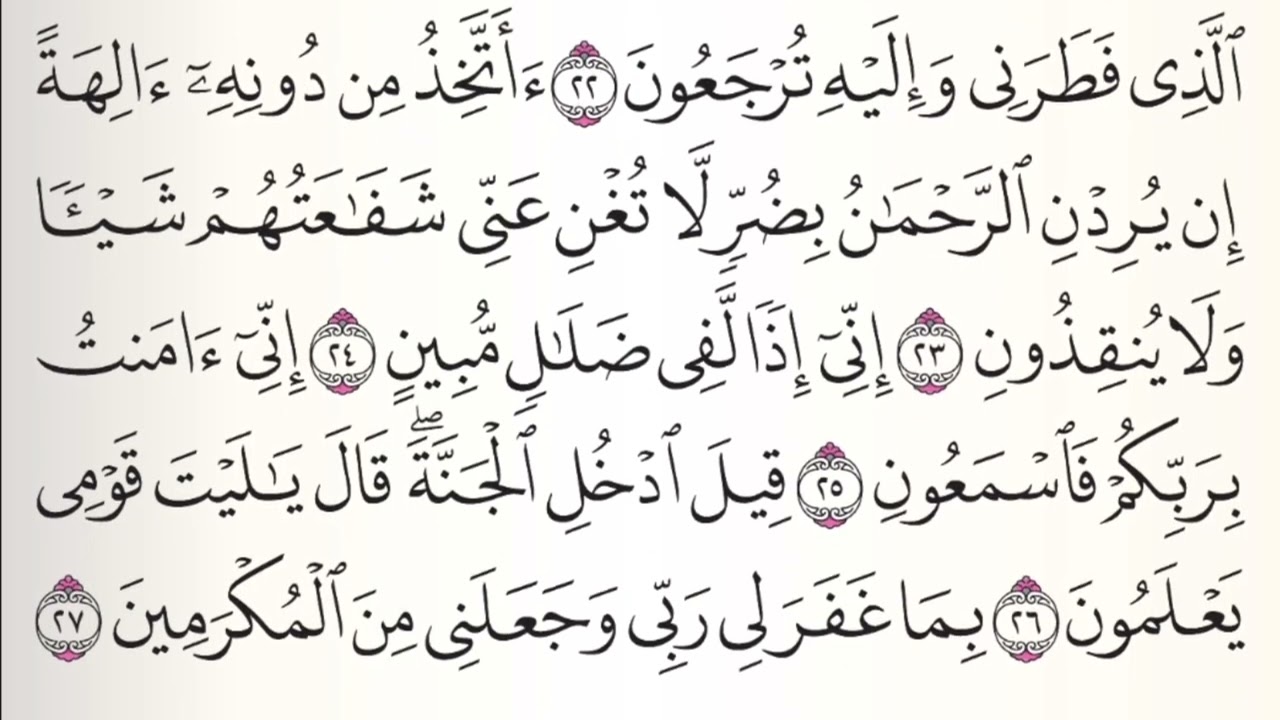 ٱلَّذِى فَطَرَنِى وَإِلَيْهِ تُرْجَعُونَ ٢٢ ءَأَتَّخِذُ مِن دُونِهِۦٓ ءَالِهَةً
إِن يُرِدْنِ ٱلرَّحْمَـٰنُ بِضُرٍّ لَّا تُغْنِ عَنِّى شَفَـٰعَتُهُمْ شَيْـًٔا
وَلَا يُنقِذُونِ ٢٣ إِنِّىٓ إِذًا لَّفِى ضَلَـٰلٍ مُّبِينٍ ٢٤ إِنِّىٓ ءَامَنتُ
بِرَبِّكُمْ فَٱسْمَعُونِ ٢٥ قِيلَ ٱدْخُلِ ٱلْجَنَّةَ ۖ قَالَ يَـٰلَيْتَ قَوْمِى
يَعْلَمُونَ ٢٦ بِمَا غَفَرَ لِى رَبِّى وَجَعَلَنِى مِنَ ٱلْمُكْرَمِينَ ٢٧